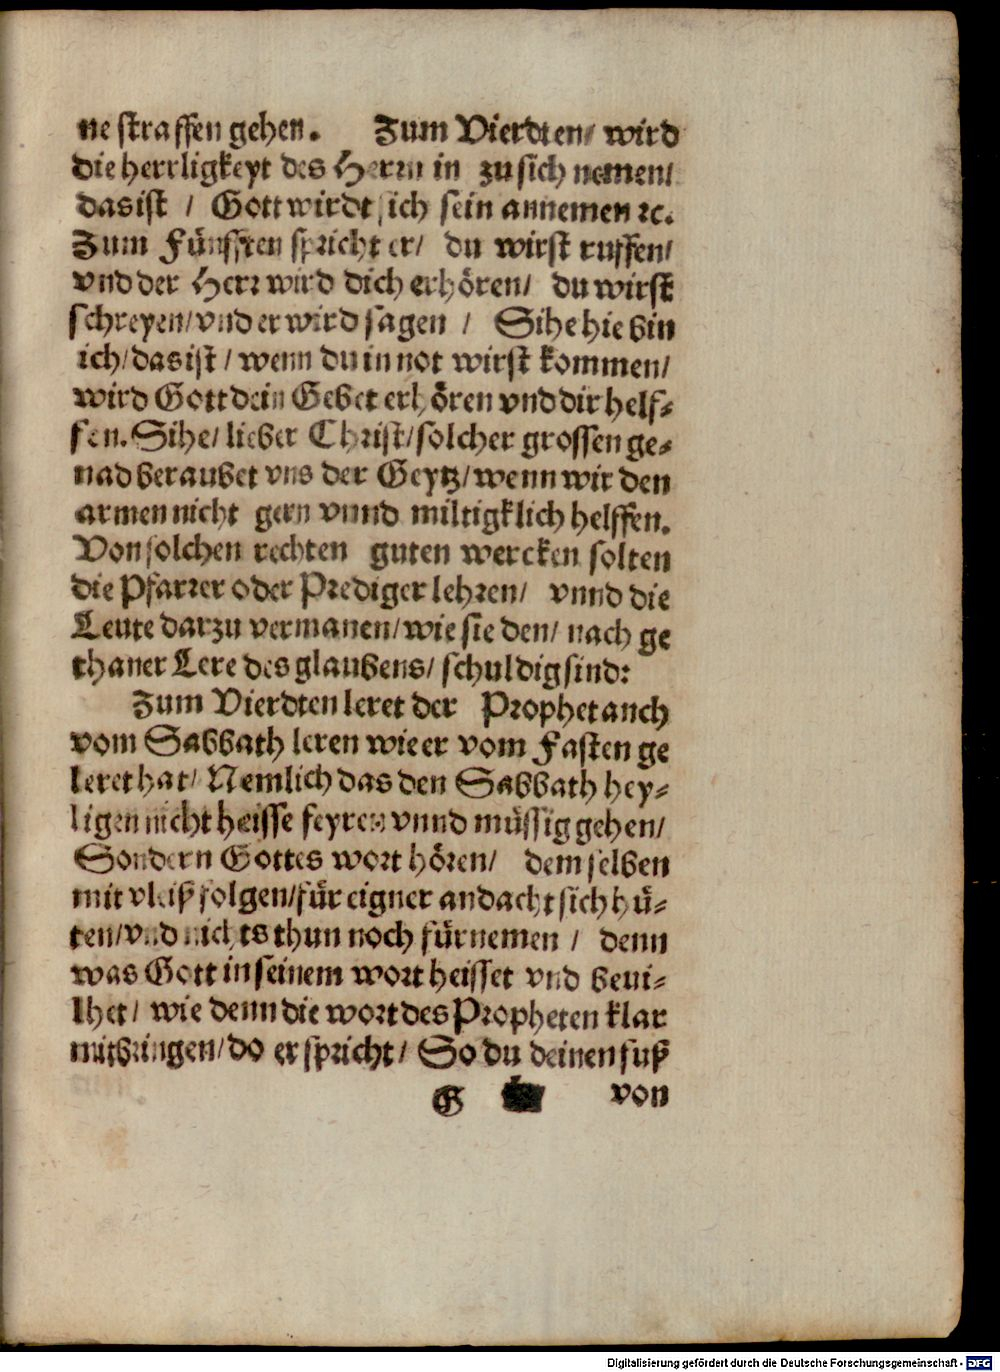 ne straffen gehen. Zum Vierdten/ wird
die herrligkeyt des Herrn in zu sich nemen/
das ist / Gott wirdt sich sein annemen ꝛc.
Zum Fünfften spricht er/ du wirst ruffen/
vnd der Herr wird dich erhören/ du wirst
schreyen/vnd er wird sagen / Sihe hie bin
ich/das ist / wenn du in not wirst kommen/
wird Gott dein Gebet erhören vnd dir helf-
fen. Sihe/ lieber Christ/solcher grossen ge-
nad beraubet vns der Geytz/wenn wir den
armen nicht gern vnnd miltigklich helffen.
Von solchen rechten guten wercken solten
die Pfarrer oder Prediger lehren/ vnnd die
Leute darzu vermanen/wie sie den/ nach ge
thaner Lere des glaubens/ schuldig sind:
Zum Vierdten leret der Prophet anch
vom Sabbath leren wie er vom Fasten ge
leret hat/ Nemlich das den Sabbath hey-
ligen nicht heisse feyren vnnd müssig gehen/
Sondern Gottes wort hören/ dem selben
mit vleiß folgen/für eigner andacht sich hü-
ten/vnd nichts thun noch fürnemen / denn
was Gott in seinem wort heisset vnd beui-
lhet/ wie denn die wort des Propheten klar
mitbringen/do er spricht/ So du deinen fuß
G von
Digitalisierung gefördert durch die Deutsche Forschungsgemeinschaft - DFG